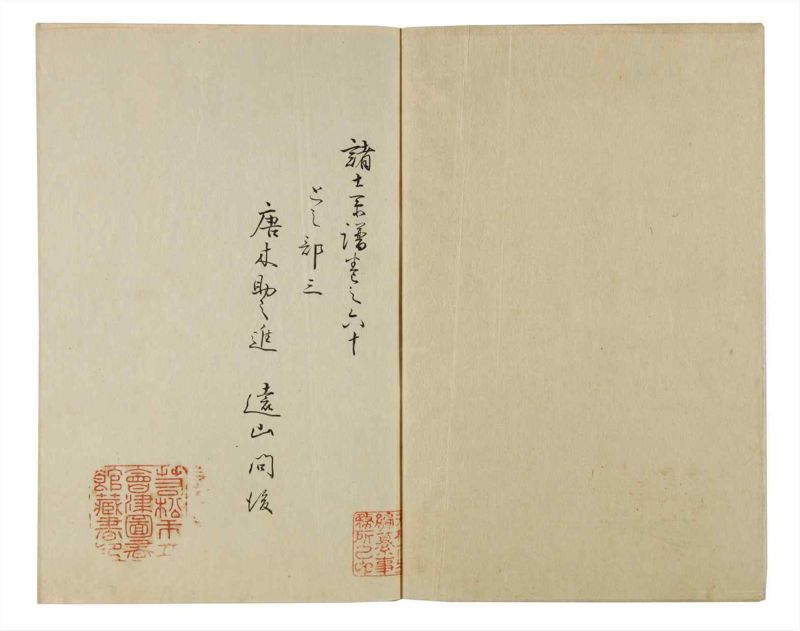 諸士系譜巻之六十
との部三
唐木助之進 遠山問
若松市立
會津圖書
館藏書印
編纂事
務所之印